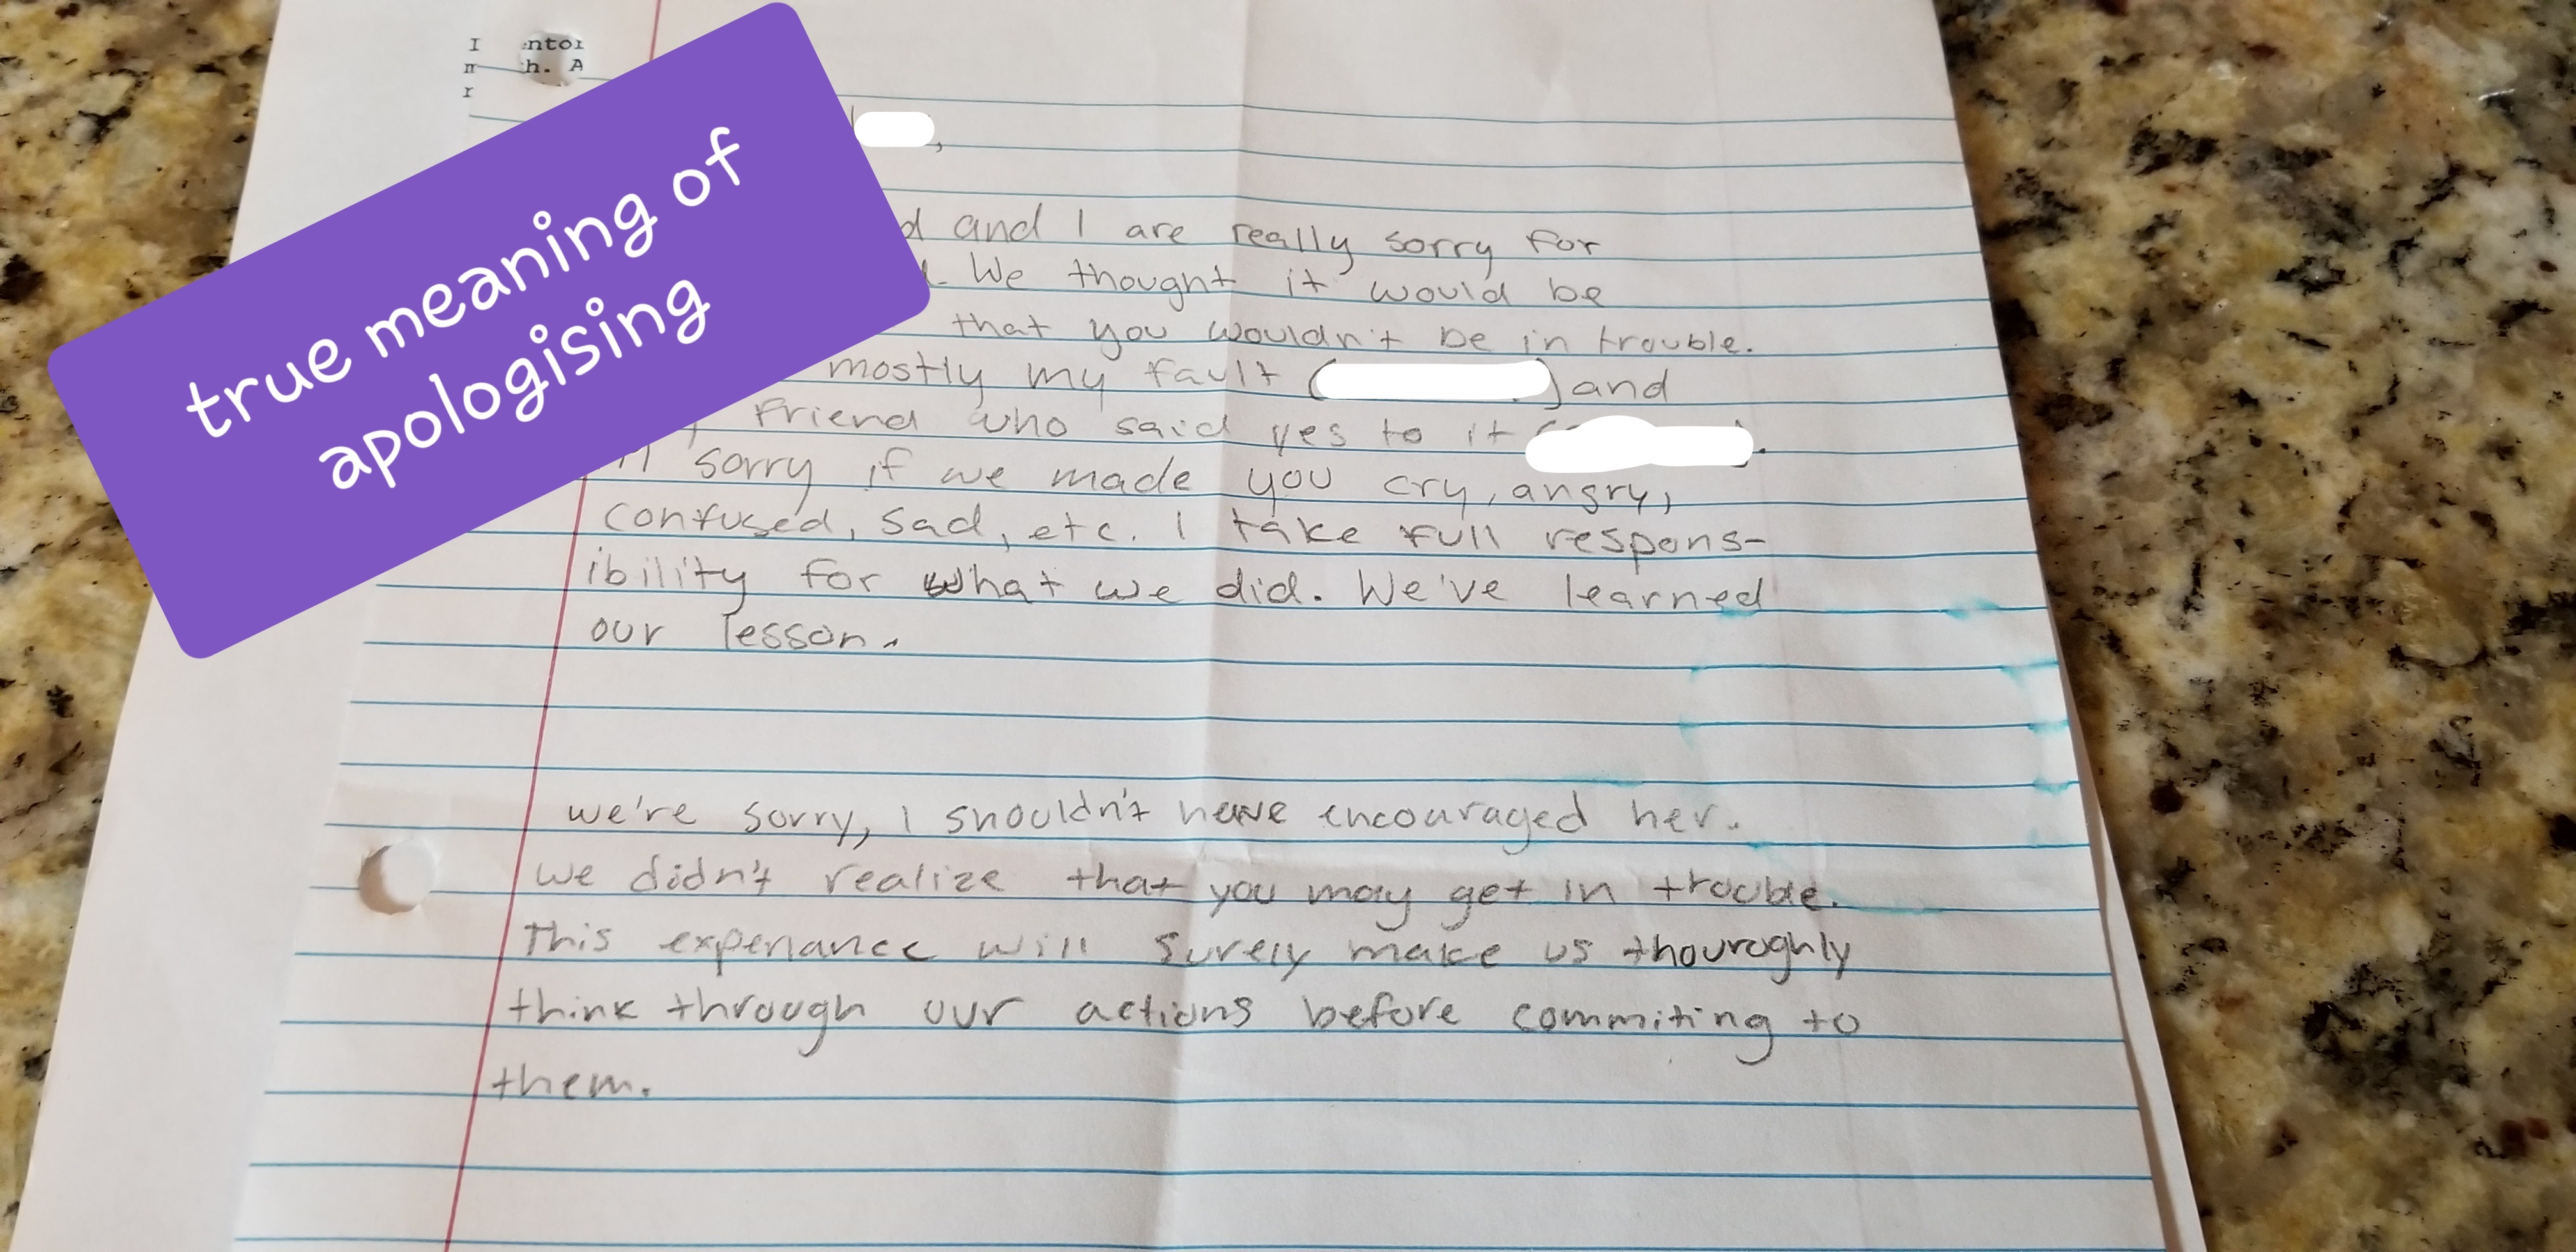 true meaning of
apologising
I ntor
h. A
r
,
and I are really sorry for
We thought it would be
that you wouldn't be in trouble.
mostly my fault ( ) and
friend who said yes to it ( ).
sorry if we made you cry, angry,
confused, sad, etc. I take full respons-
ibility for what we did. We've learned
our lesson.
we're sorry, I shouldn't have encouraged her.
we didn't realize that you may get in trouble.
This experiance will surely make us thouroghly
think through our actions before commiting to
them.